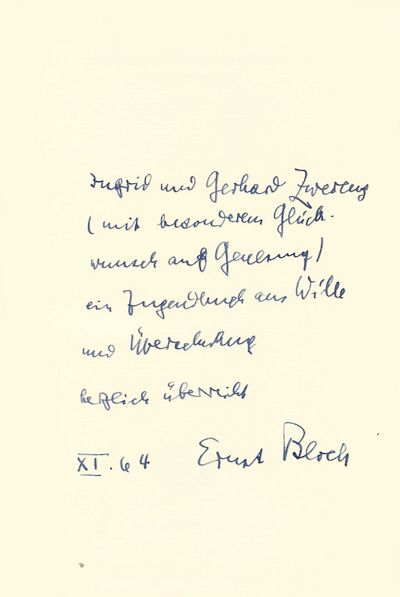 Ingrid und Gerhard Zwerenz
(mit besonderem Glück-
wunsch auf Genesung)
ein Jugendbuch aus Wille
und Überschuß
herzlich überreicht
XI. 64 Ernst Bloch